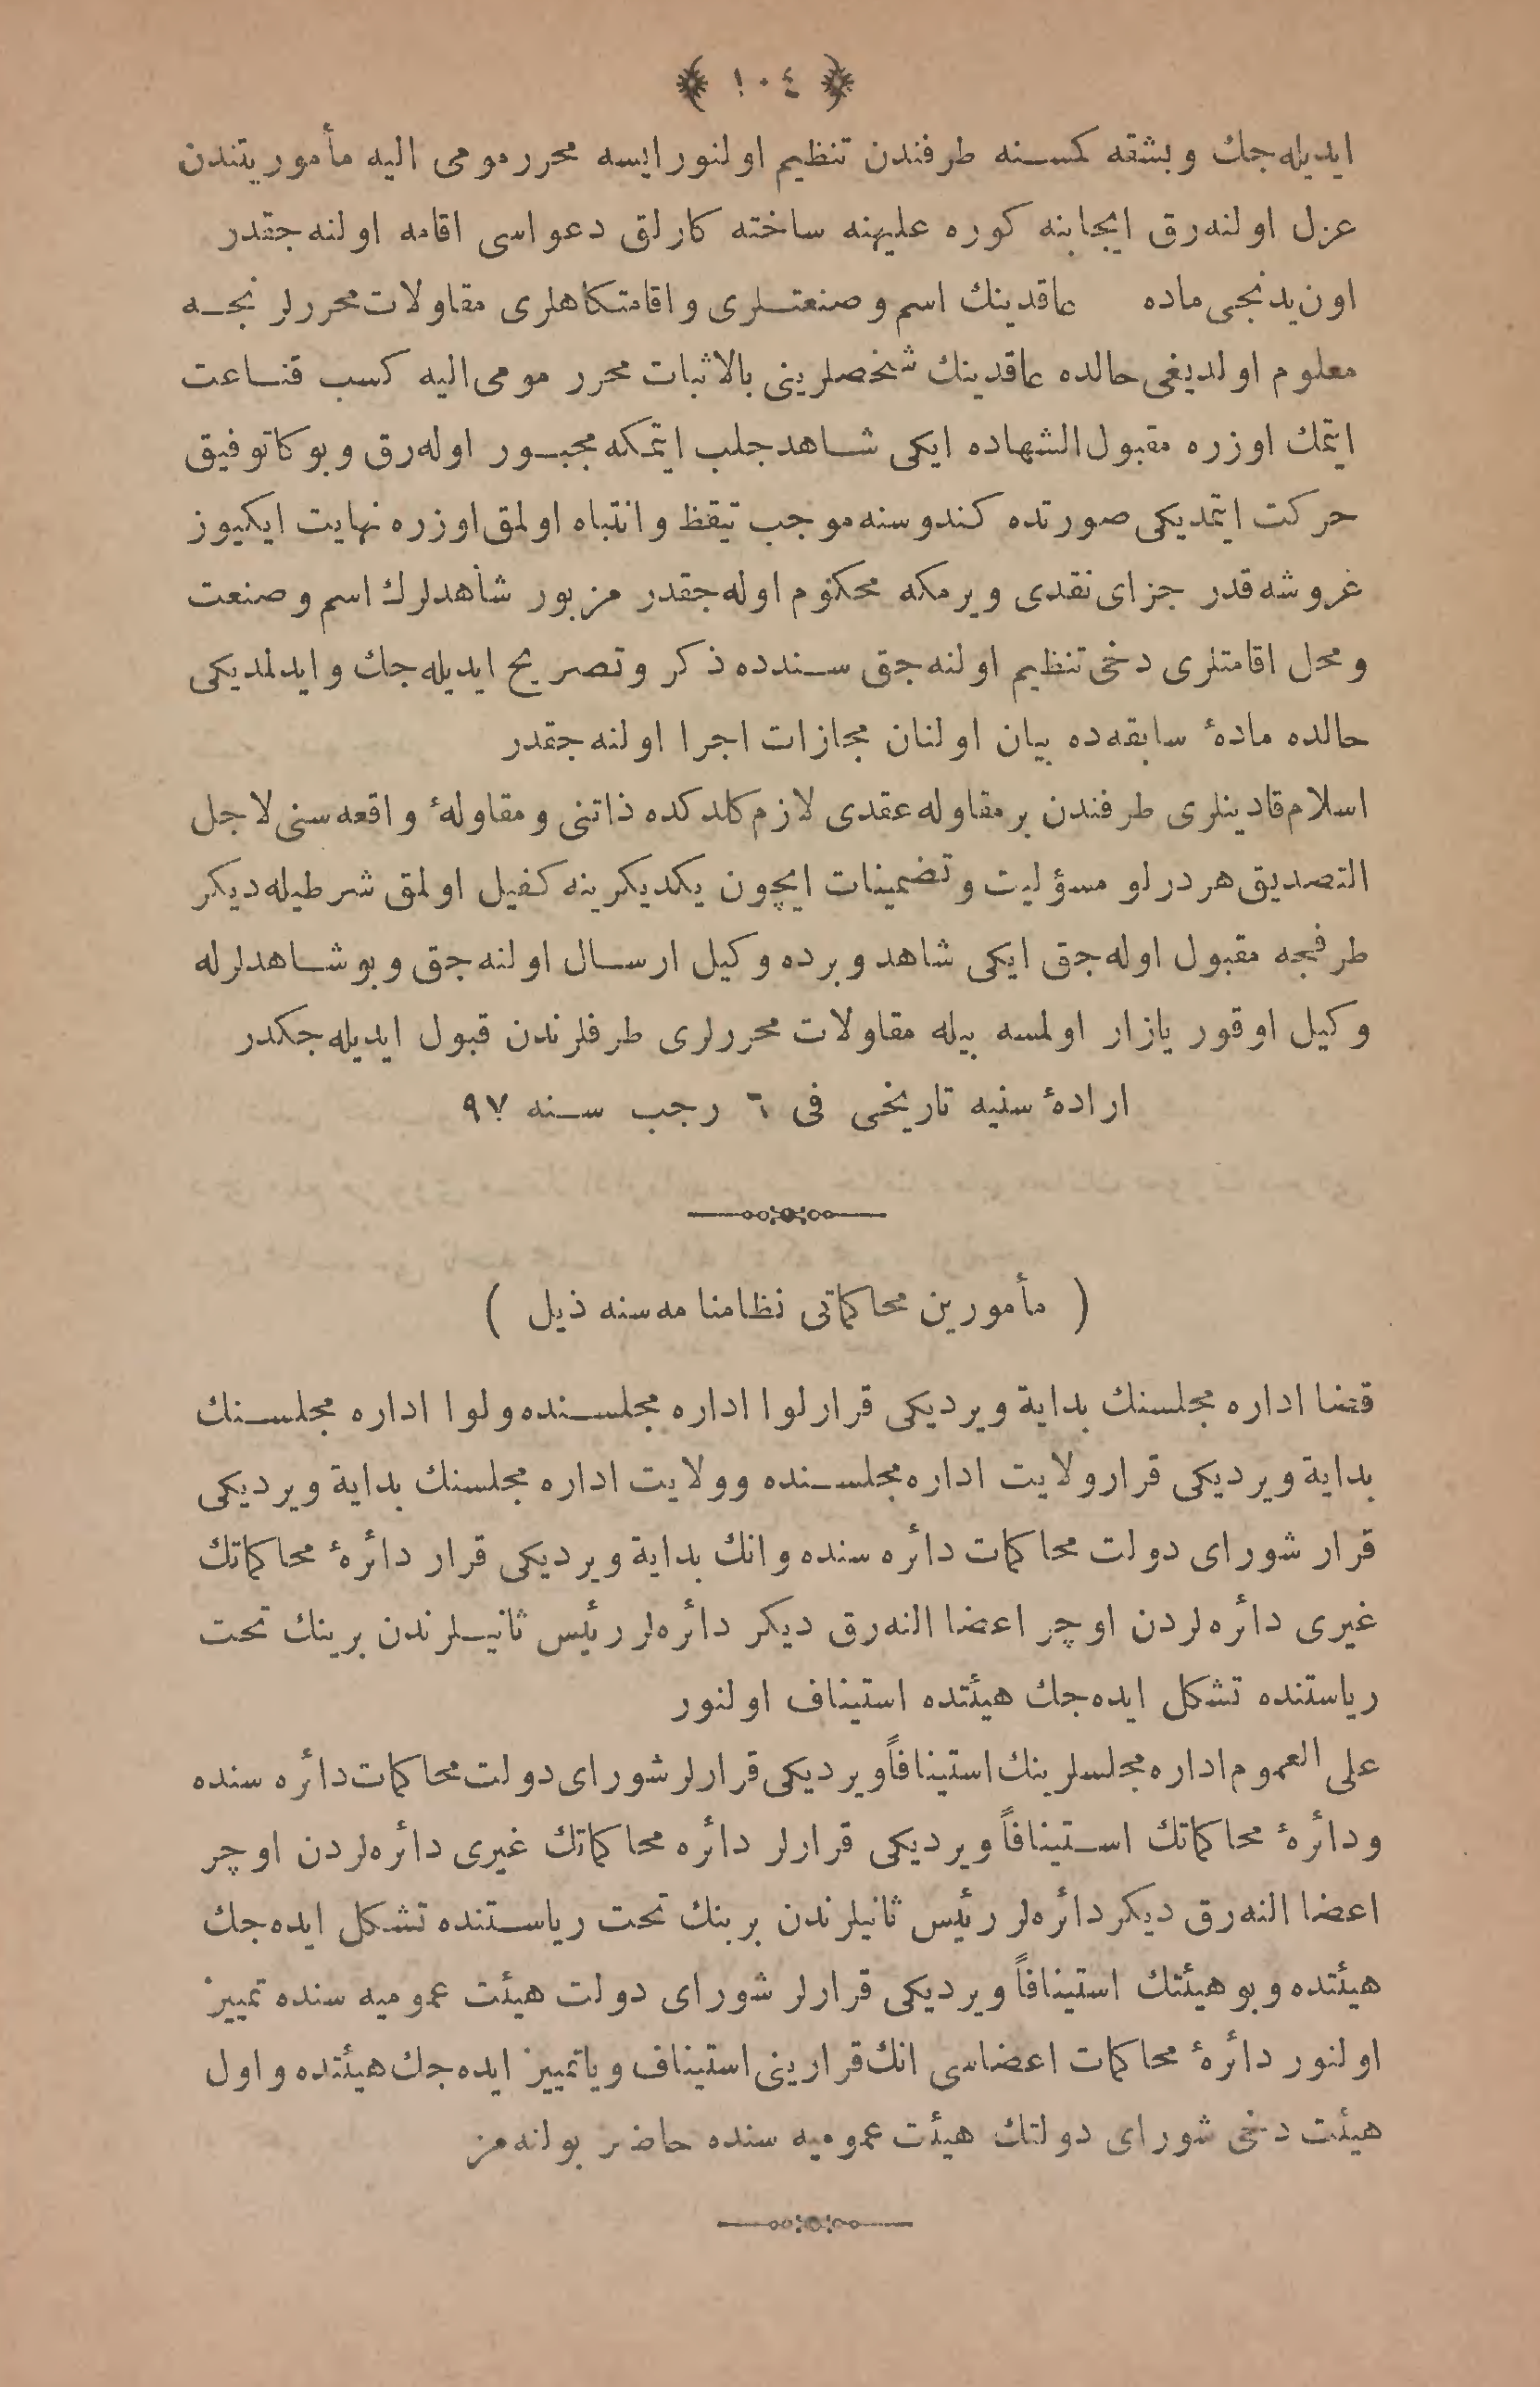 ﴿ ١٠٤ ﴾
ايديله‌جك وبشقه كمسنه طرفندن تنظيم اولنور ايسه محرر مومى اليه مأموريتندن
عزل اولنه‌رق ايجابنه كوره عليهنه ساخته كارلق دعواسى اقامه اولنه‌جقدر
اون‌يدنجى ماده عاقدينك اسم وصنعتلرى واقامتكاهلرى مقاولات محررلرنجه
معلوم اولديغى حالده عاقدينك شخصلرينى بالاثبات محرر مومى‌اليه كسب قناعت
ايتمك اوزره مقبول الشهاده ايكى شاهد جلب ايتمكه مجبور اوله‌رق وبوكا توفيق
حركت ايتمديكى صورتده كندوسنه موجب تيقظ وانتباه اولمق اوزره نهايت ايكيوز
غروشه قدر جزاى نقدى ويرمكه محكوم اوله‌جقدر مزبور شاهدلرك اسم وصنعت
ومحل اقامتلرى دخى تنظيم اولنه‌جق سندده ذكر وتصريح ايديله‌جك وايدلمديكى
حالده مادهٔ سابقه‌ده بيان اولنان مجازات اجرا اولنه‌جقدر
اسلام قادينلرى طرفندن بر مقاوله عقدى لازم كلدكده ذاتنى ومقاولهٔ واقعه‌سنى لاجل
التصديق هر درلو مسؤليت وتضمينات ايچون يكديكرينه كفيل اولمق شرطيله ديكر
طرفجه مقبول اوله‌جق ايكى شاهد وبرده وكيل ارسال اولنه‌جق وبو شاهدلرله
وكيل اوقور يازار اولمسه بيله مقاولات محررلرى طرفلرندن قبول ايديله‌جكدر
ارادهٔ سنيه تاريخى فى ٦ رجب سنه ٩٧
( مأمورين محاكماتى نظامنامه‌سنه ذيل )
قضا اداره مجلسنك بداية ويرديكى قرار لوا اداره مجلسنده ولوا اداره مجلسنك
بداية ويرديكى قرار ولايت اداره مجلسنده وولايت اداره مجلسنك بداية ويرديكى
قرار شوراى دولت محاكمات دائره سنده وانك بداية ويرديكى قرار دائرهٔ محاكماتك
غيرى دائره‌لردن اوچر اعضا النه‌رق ديكر دائره‌لر رئيس ثانيلرندن برينك تحت
رياستنده تشكل ايده‌جك هيئتده استيناف اولنور
على العموم اداره مجلسلرينك استينافاً ويرديكى قرارلر شوراى دولت محاكمات دائره سنده
ودائرهٔ محاكماتك استينافاً ويرديكى قرارلر دائره محاكماتك غيرى دائره‌لردن اوچر
اعضا النه‌رق ديكر دائره‌لر رئيس ثانيلرندن برينك تحت رياستنده تشكل ايده‌جك
هيئتده وبو هيئتك استينافاً ويرديكى قرارلر شوراى دولت هيئت عموميه سنده تمييز
اولنور دائرهٔ محاكمات اعضاسى انك قرارينى استيناف وياتمييز ايده‌جك هيئتده واول
هيئت دخى شوراى دولتك هيئت عموميه سنده حاضر بولنه‌مز